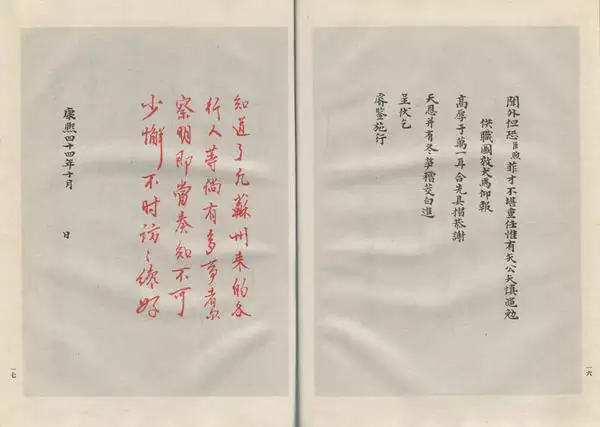 閫外但恐臣煦菲才不堪重任惟有矢公矢慎黽勉
供職圖效犬馬仰報
高厚于萬一耳合先具摺恭謝
天恩并有冬笋糟茭白進
呈伏乞
睿鑒施行
一六
知道了凡蘇州來的各
行人等倘有多事者尔
察明即當奏知不可
少懈不时訪〻纔好
康熙四十四年十月 日
一七